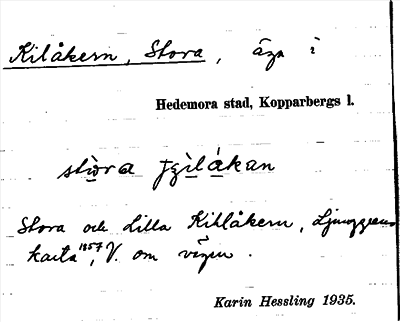 Kilåkern, Stora, äga i
Hedemora stad, Kopparbergs l.
stora
Stora och Lilla Kihlåkern, Ljunggrens
karta 1857, V. om vägen.
Karin Hessling 1935.